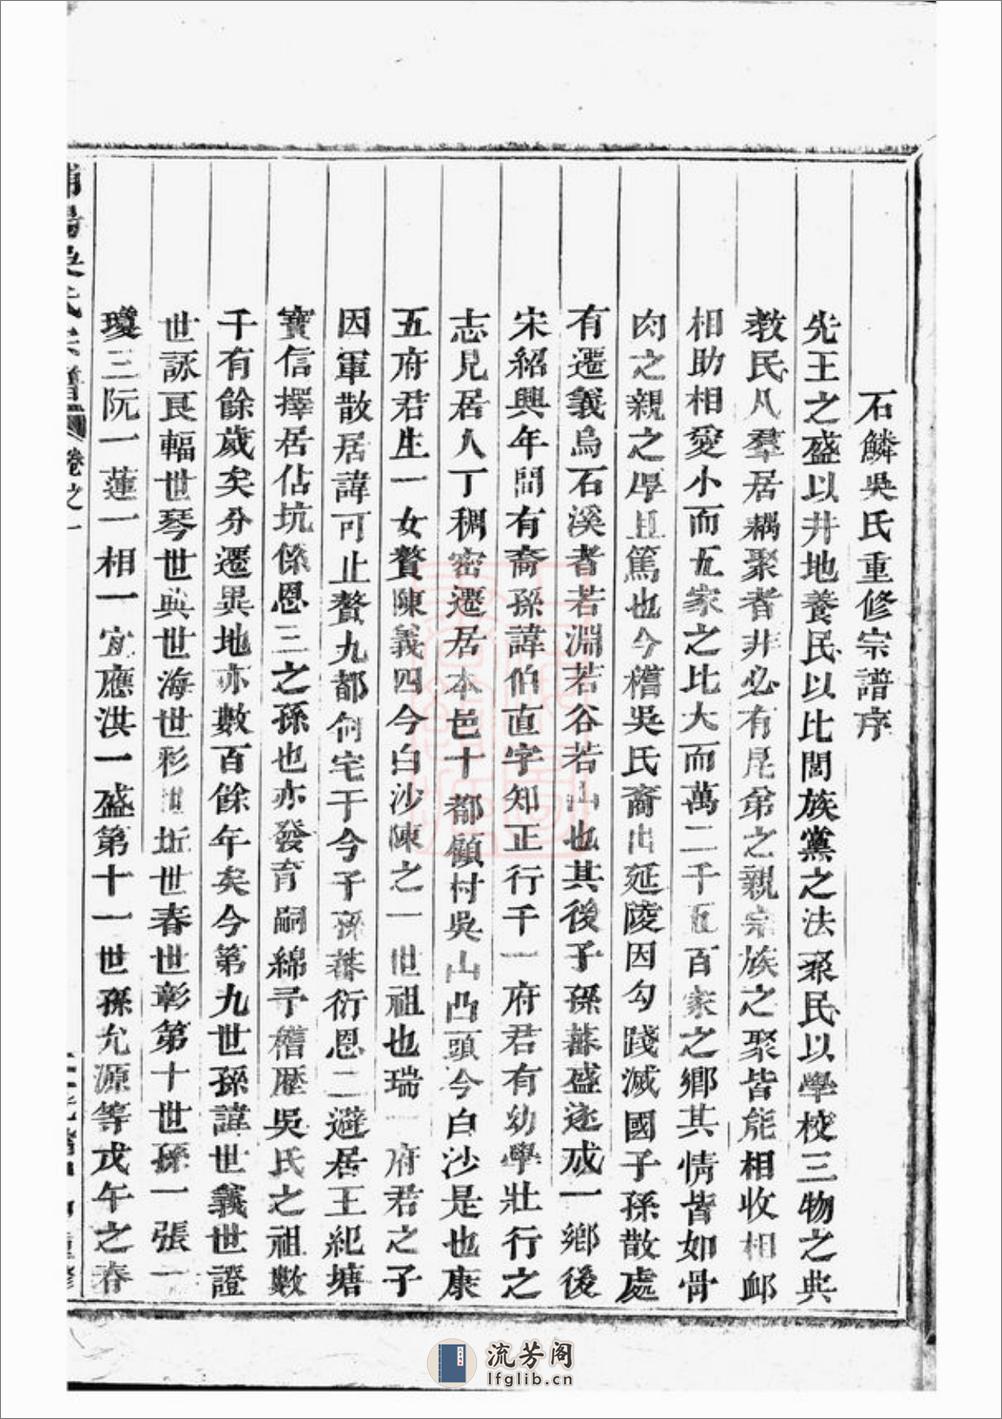 石鱗吳氏重修宗譜序
先王之盛以井地養民以比閭族黨之法聚民以學校三物之典
教民凡羣居耦聚者非必有昆弟之親宗族之聚皆能相收相卹
相助相愛小而五家之比大而萬二千五百家之鄉其情皆如骨
肉之親之厚且篤也今稽吳氏裔出延陵因勾踐滅國子孫散處
有遷義烏石溪者若淵若谷若山也其後子孫蕃盛遂成一鄉後
宋紹興年間有裔孫諱伯直字知正行千一府君有幼學壯行之
志見居人丁稠密遷居本邑十都顧村吳山凸頭今白沙是也康
五府君生一女贅陳義四今白沙陳之一世祖也瑞一府君之子
因軍散居諱可止贅九都何宅于今子孫蕃衍恩二避居王祀塘
寶信擇居佔坑係恩三之孫也亦發育嗣綿予稽歷吳氏之祖數
千有餘歲矣分遷異地亦數百餘年矣今第九世孫諱世義世證
世詠艮輻世琴世典世海世彩世圻世春世彰第十世孫一張一
瓊三阮一蓮一相一宜應洪一盛第十一世孫允源等戊午之春
吳氏宗譜 卷之一
重修
流芳阁
lfglib.cn